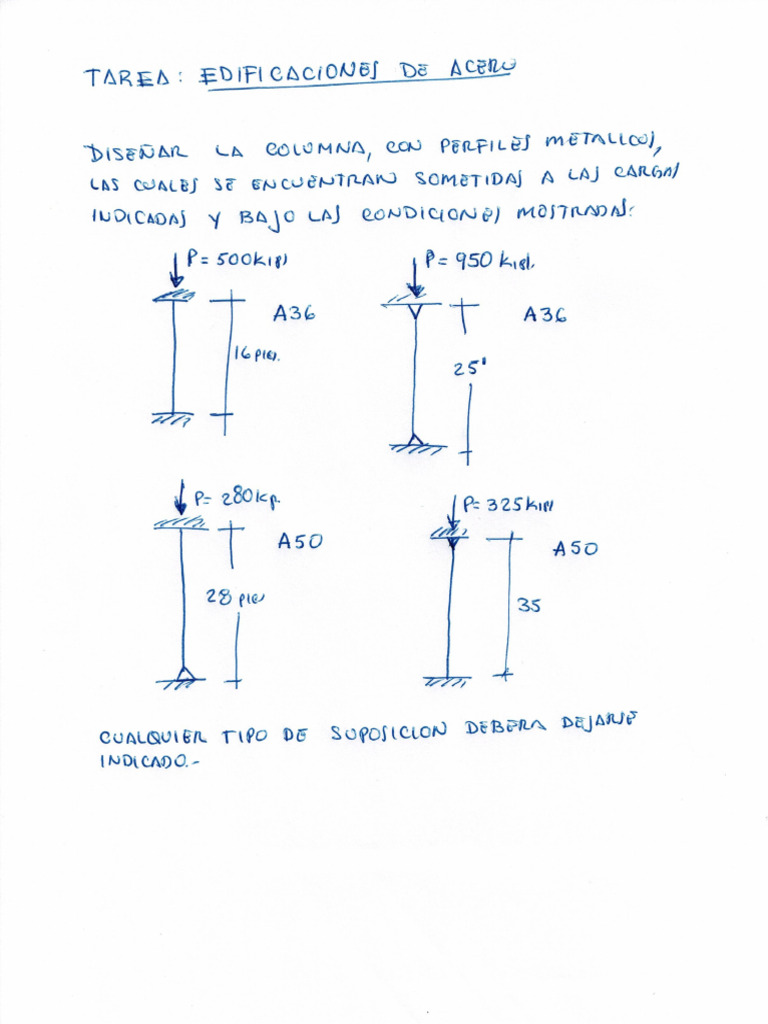 TAREA: EDIFICACIONES DE ACERO
DISEÑAR LA COLUMNA, CON PERFILES METALICOS,
LAS CUALES SE ENCUENTRAN SOMETIDAS A LAS CARGAS
INDICADAS Y BAJO LAS CONDICIONES MOSTRADAS:
P= 500KIPS
A36
16 PIES.
P= 950 KIPS.
A36
25'
P= 280KP.
A50
28 PIES
P= 325KIPS
A50
35
CUALQUIER TIPO DE SUPOSICION DEBERA DEJARSE
INDICADO.-